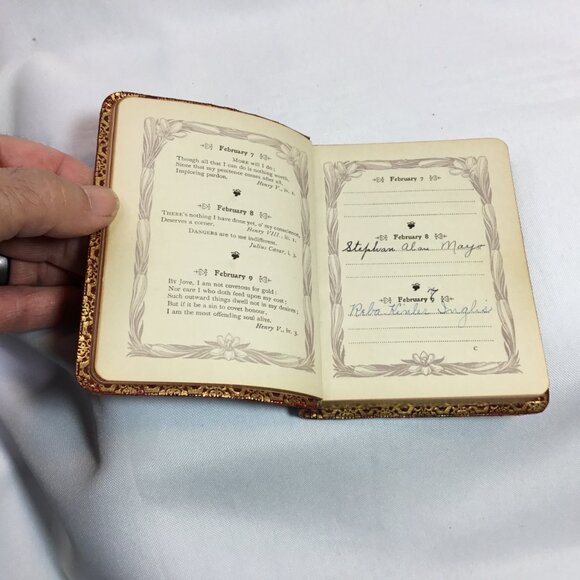 February 7
MORE will I do:
Though all that I can do is nothing worth,
Since that my penitence comes after all,
Imploring pardon.
Henry V., iv. 1.
February 8
THERE'S nothing I have done yet, o' my conscience,
Deserves a corner.
Henry VIII. iii. 1.
DANGERS are to me indifferent.
Julius Cæsar, i. 3.
February 9
BY JOVE, I am not covetous for gold:
Nor care I who doth feed upon my cost;
Such outward things dwell not in my desires;
But if it be a sin to covet honour,
I am the most offending soul alive.
Henry V., iv. 3.
February 7
February 8
Stephan Alan Mayo
February 9
Reba Kesler Inglis
C